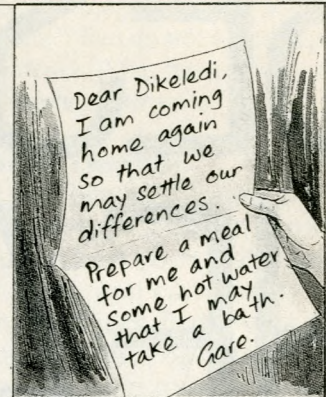 Dear Dikeledi,
I am coming
home again
so that we
may settle our
differences.
Prepare a meal
for me and
some hot water
that I may
take a bath.
Garo.